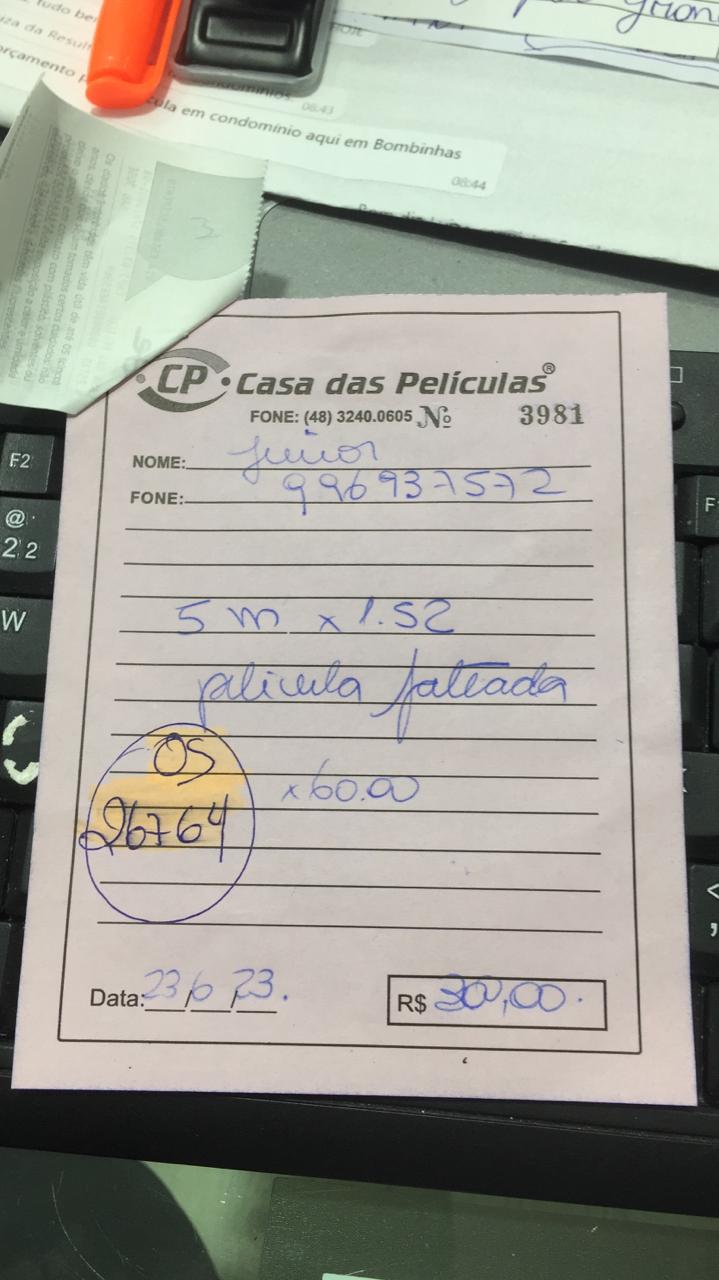 tudo be
za da Result
orçamento p
08:43
cula em condomínio aqui em Bombinhas
08:44
3
CP Casa das Películas®
FONE: (48) 3240.0605 Nº 3981
NOME: Junior
FONE: 996937572
5 m x 1.52
pelicula jateada
OS
x60.00
26764
Data: 23/6/23.
R$ 300,00.
F2
@
2 2
W